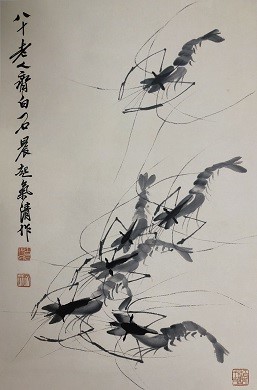 八十老人齊白石晨起氣清作